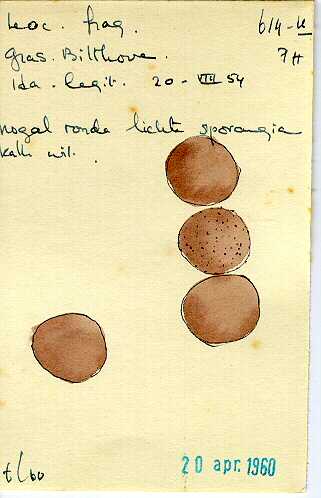 Leoc. frag. 614-
gras. Bilthove.
7H
Ida. legit. 20-VIII 54
nogal ronde lichte sporangia
kalk wit.
t/60
20 apr. 1960